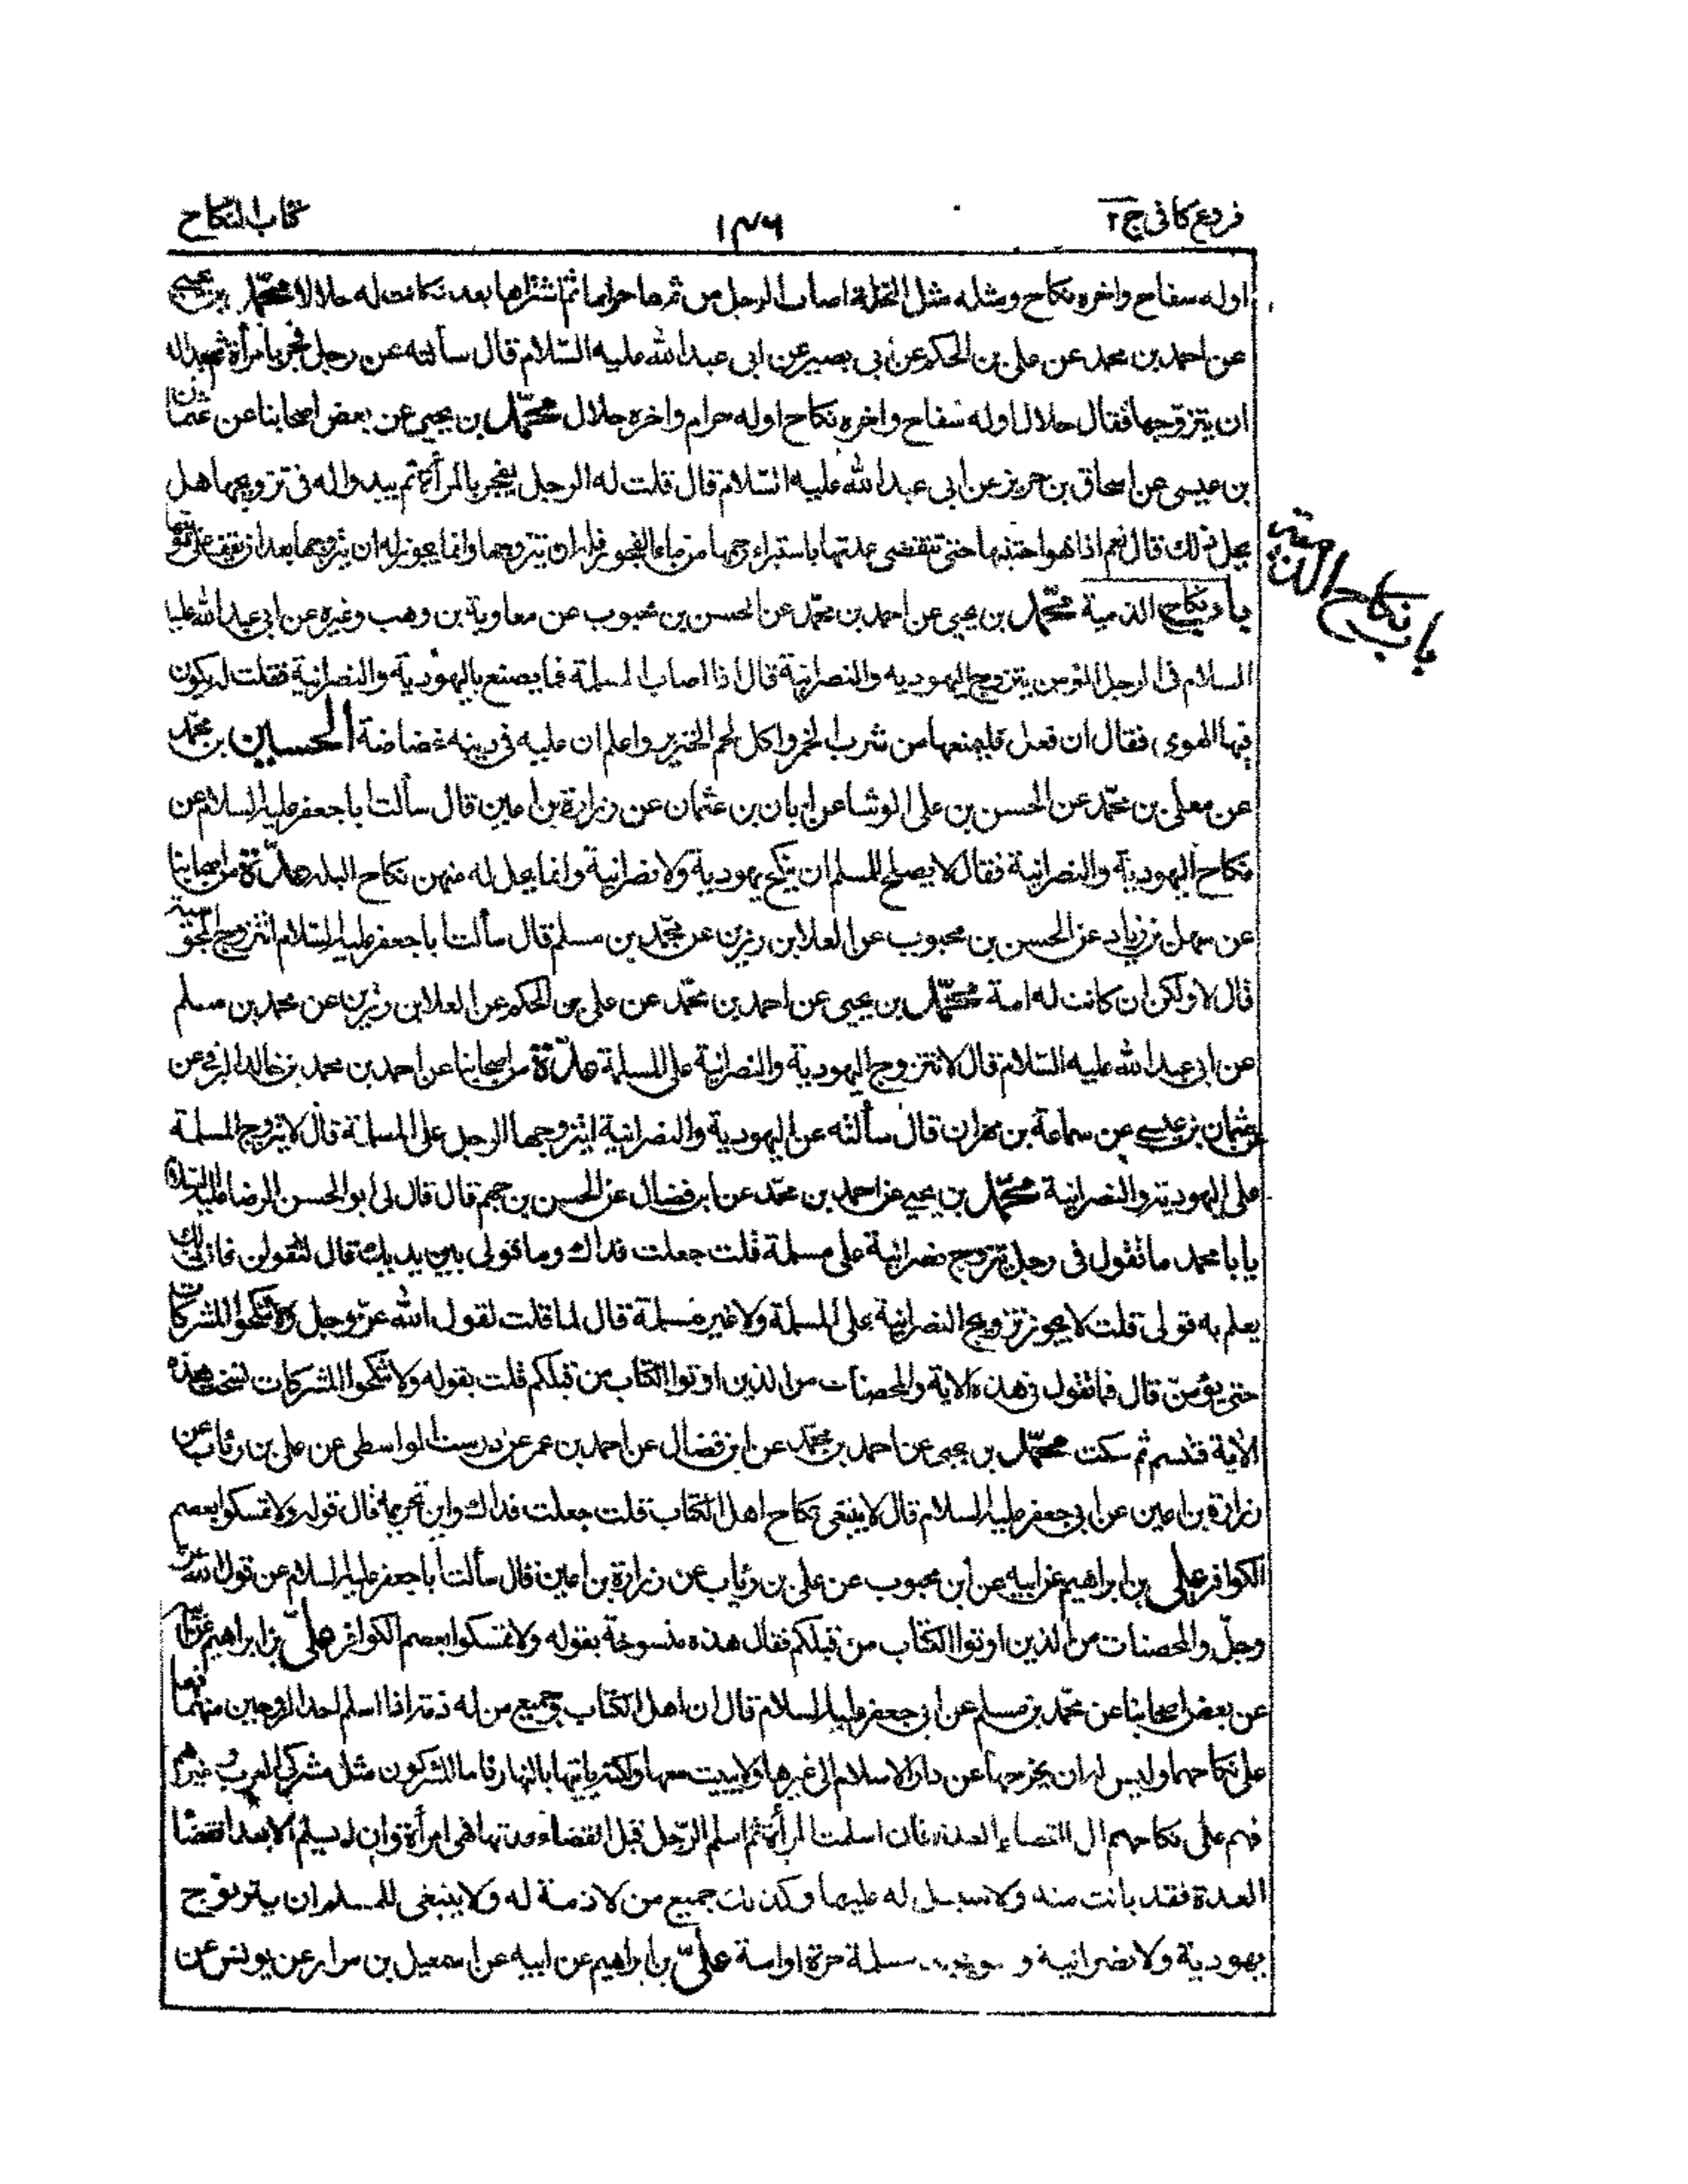 فروع كافى ج ٢
١٤٦
كتاب النكاح
اوله سفاح واخره نكاح ومثله مثل النخلة اصاب الرجل من ثمرها حراما ثم اشتراها بعد فكانت له حلالا محمّد بن يحيى
عن احمد بن محمد عن على بن الحكم عن ابى بصير عن ابى عبدالله عليه السّلام قال سألته عن رجل فجر بامرأة ثم بدا له
ان يتزوّجها فقال حلال اوله سفاح واخره نكاح اوله حرام واخره حلال محمّد بن يحيى عن بعض اصحابنا عن عثمان
بن عيسى عن اسحاق بن حريز عن ابى عبدالله عليه السّلام قال قلت له الرجل يفجر بالمرأة ثم يبدو اله فى تزويجها هل
يحل له ذلك قال نعم اذا هو اجتنبها حتى تنقضى عدتها باستبراء رحمها من ماء الفجور فله ان يتزوجها وانما يجوز له ان يتزوجها بعد ان يقف على توبتها
باب نكاح الذمية محمّد بن يحيى عن احمد بن محمّد عن الحسن بن محبوب عن معاوية بن وهب وغيره عن ابى عبدالله عليه
باب نكاح الذمية
السلام فى الرجل المؤمن يتزوج اليهوديه والنصرانية قال اذا اصاب المسلمة فما يصنع باليهودية والنصرانية فقلت له يكون
فيها الهوى فقال ان فعل فليمنعها من شرب الخمر واكل لحم الخنزير واعلم ان عليه فى دينه غضاضة الحسين بن محمّد
عن معلى بن محمّد عن الحسن بن على الوشا عن ابان بن عثمان عن زرارة بن اعين قال سألت ابا جعفر عليه السلام عن
نكاح اليهودية والنصرانية فقال لا يصلح للمسلم ان ينكح يهودية ولا نصرانية وانما يحل له منهن نكاح البله عدّة من اصحابنا
عن سهل بن زياد عن الحسن بن محبوب عن العلا بن رزين عن محمّد بن مسلم قال سألت ابا جعفر عليه السّلام ايتزوج المجوسية
قال لا ولكن ان كانت له امة محمّد بن يحيى عن احمد بن محمّد عن على بن الحكم عن العلا بن رزين عن محمد بن مسلم
عن ابى عبدالله عليه السّلام قال لا تتزوج اليهودية والنصرانية على المسلمة عدّة من اصحابنا عن احمد بن محمد بن خالد البرقى عن
عثمان بن عيسى عن سماعة بن مهران قال سألته عن اليهودية والنصرانية ايتزوجها الرجل على المسلمة قال لا يتزوج المسلمة
على اليهودية والنصرانية محمّد بن يحيى عن احمد بن محمّد عن ابن فضال عن الحسن بن جهم قال قال لى ابو الحسن الرضا عليه السلام
يا با محمد ما تقول فى رجل يتزوج نصرانية على مسلمة قلت جعلت فداك وما قولى بين يديك قال لتقولن فان ذلك
يعلم به قولى قلت لا يجوز تزويج النصرانية على المسلمة ولا غير مسلمة قال لما قلت لقول الله عزّ وجل ولا تنكحوا المشركات
حتى يؤمنّ قال فما تقول فى هذه الاية والمحصنات من الذين اوتوا الكتاب من قبلكم قلت بقوله ولا تنكحوا المشركات نسخت هذه
الاية فتبسم ثم سكت محمّد بن يحيى عن احمد بن محمّد عن ابن فضال عن احمد بن عمر عن درست الواسطى عن على بن رئاب عن
زرارة بن اعين عن ابى جعفر عليه السلام قال لا ينبغى نكاح اهل الكتاب قلت جعلت فداك واين تحريمه قال قوله ولا تمسكوا بعصم
الكوافر على بن ابراهيم عن ابيه عن ابن محبوب عن على بن رئاب عن زرارة بن اعين قال سألت ابا جعفر عليه السلام عن قول الله عزّ
وجلّ والمحصنات من الذين اوتوا الكتاب من قبلكم فقال هذه منسوخة بقوله ولا تمسكوا بعصم الكوافر علىّ بن ابراهيم عن ابيه
عن بعض اصحابنا عن محمّد بن مسلم عن ابى جعفر عليه السلام قال ان اهل الكتاب وجميع من له ذمة اذا اسلم احد الزوجين فهما
على نكاحهما وليس له ان يخرجها عن دار الاسلام الى غيرها ولا يبيت معها ولكنه ياتيها بالنهار فاما المشركون مثل مشركى العرب وغيرهم
فهم على نكاحهم الى انقضاء العدة فان اسلمت المرأة ثم اسلم الرّجل قبل انقضاء عدتها فهى امرأته وان لم يسلم الا بعد انقضاء
العدة فقد بانت منه ولا سبيل له عليها وكذلك جميع من لا ذمة له ولا ينبغى للمسلم ان يتزوج
يهودية ولا نصرانية و مسلمة حرة او امة علىّ بن ابراهيم عن ابيه عن اسمعيل بن مرار عن يونس عن